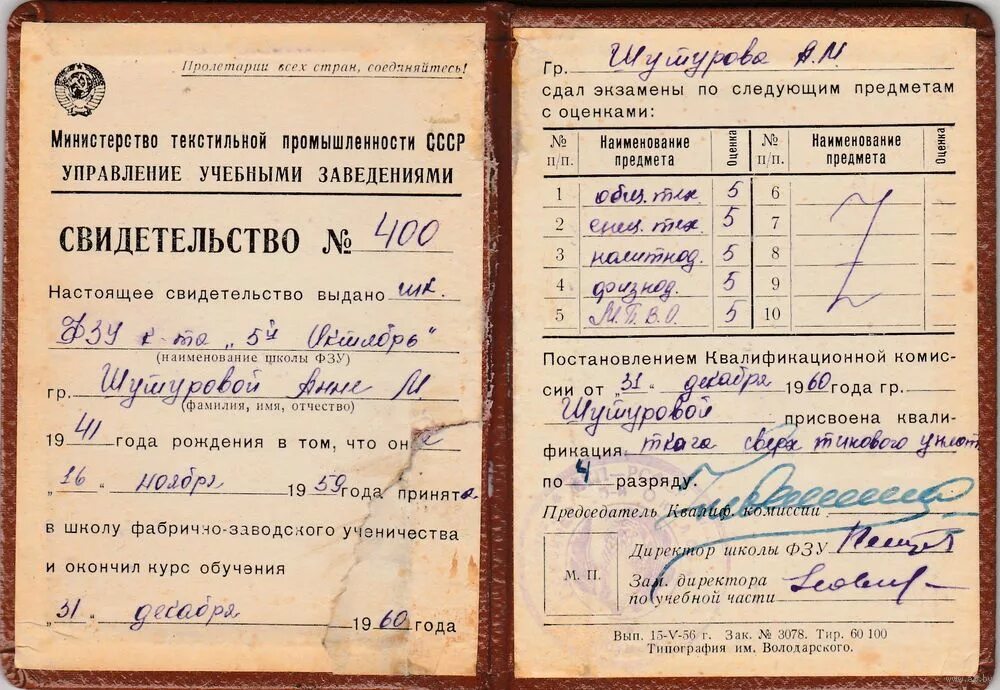 Пролетарии всех стран, соединяйтесь!
Министерство текстильной промышленности СССР
УПРАВЛЕНИЕ УЧЕБНЫМИ ЗАВЕДЕНИЯМИ
СВИДЕТЕЛЬСТВО № 400
Настоящее свидетельство выдано шк.
ФЗУ к-та „5й Октябрь"
(наименование школы ФЗУ)
гр. Шутуровой Анне М
(фамилия, имя, отчество)
1941 года рождения в том, что она
„16" ноября 1959 года принята
в школу фабрично-заводского ученичества
и окончил курс обучения
„31" декабря 1960 года
Гр. Шутурова А.М
сдал экзамены по следующим предметам
с оценками:
№ п/п. Наименование предмета Оценка № п/п. Наименование предмета Оценка
1 общ. тех. 5 6
2 спец. тех. 5 7
3 политпод. 5 8
4 физпод. 5 9
5 М.П.В.О. 5 10
Постановлением Квалификационной комис-
сии от „31" декабря 1960 года гр.
Шутуровой присвоена квали-
фикация ткача сверх типового уплот
по 4 разряду.
Председатель Квалиф. комиссии
Директор школы ФЗУ
М. П.
Зам. директора
по учебной части
Вып. 15-V-56 г. Зак. № 3078. Тир. 60 100
Типография им. Володарского.